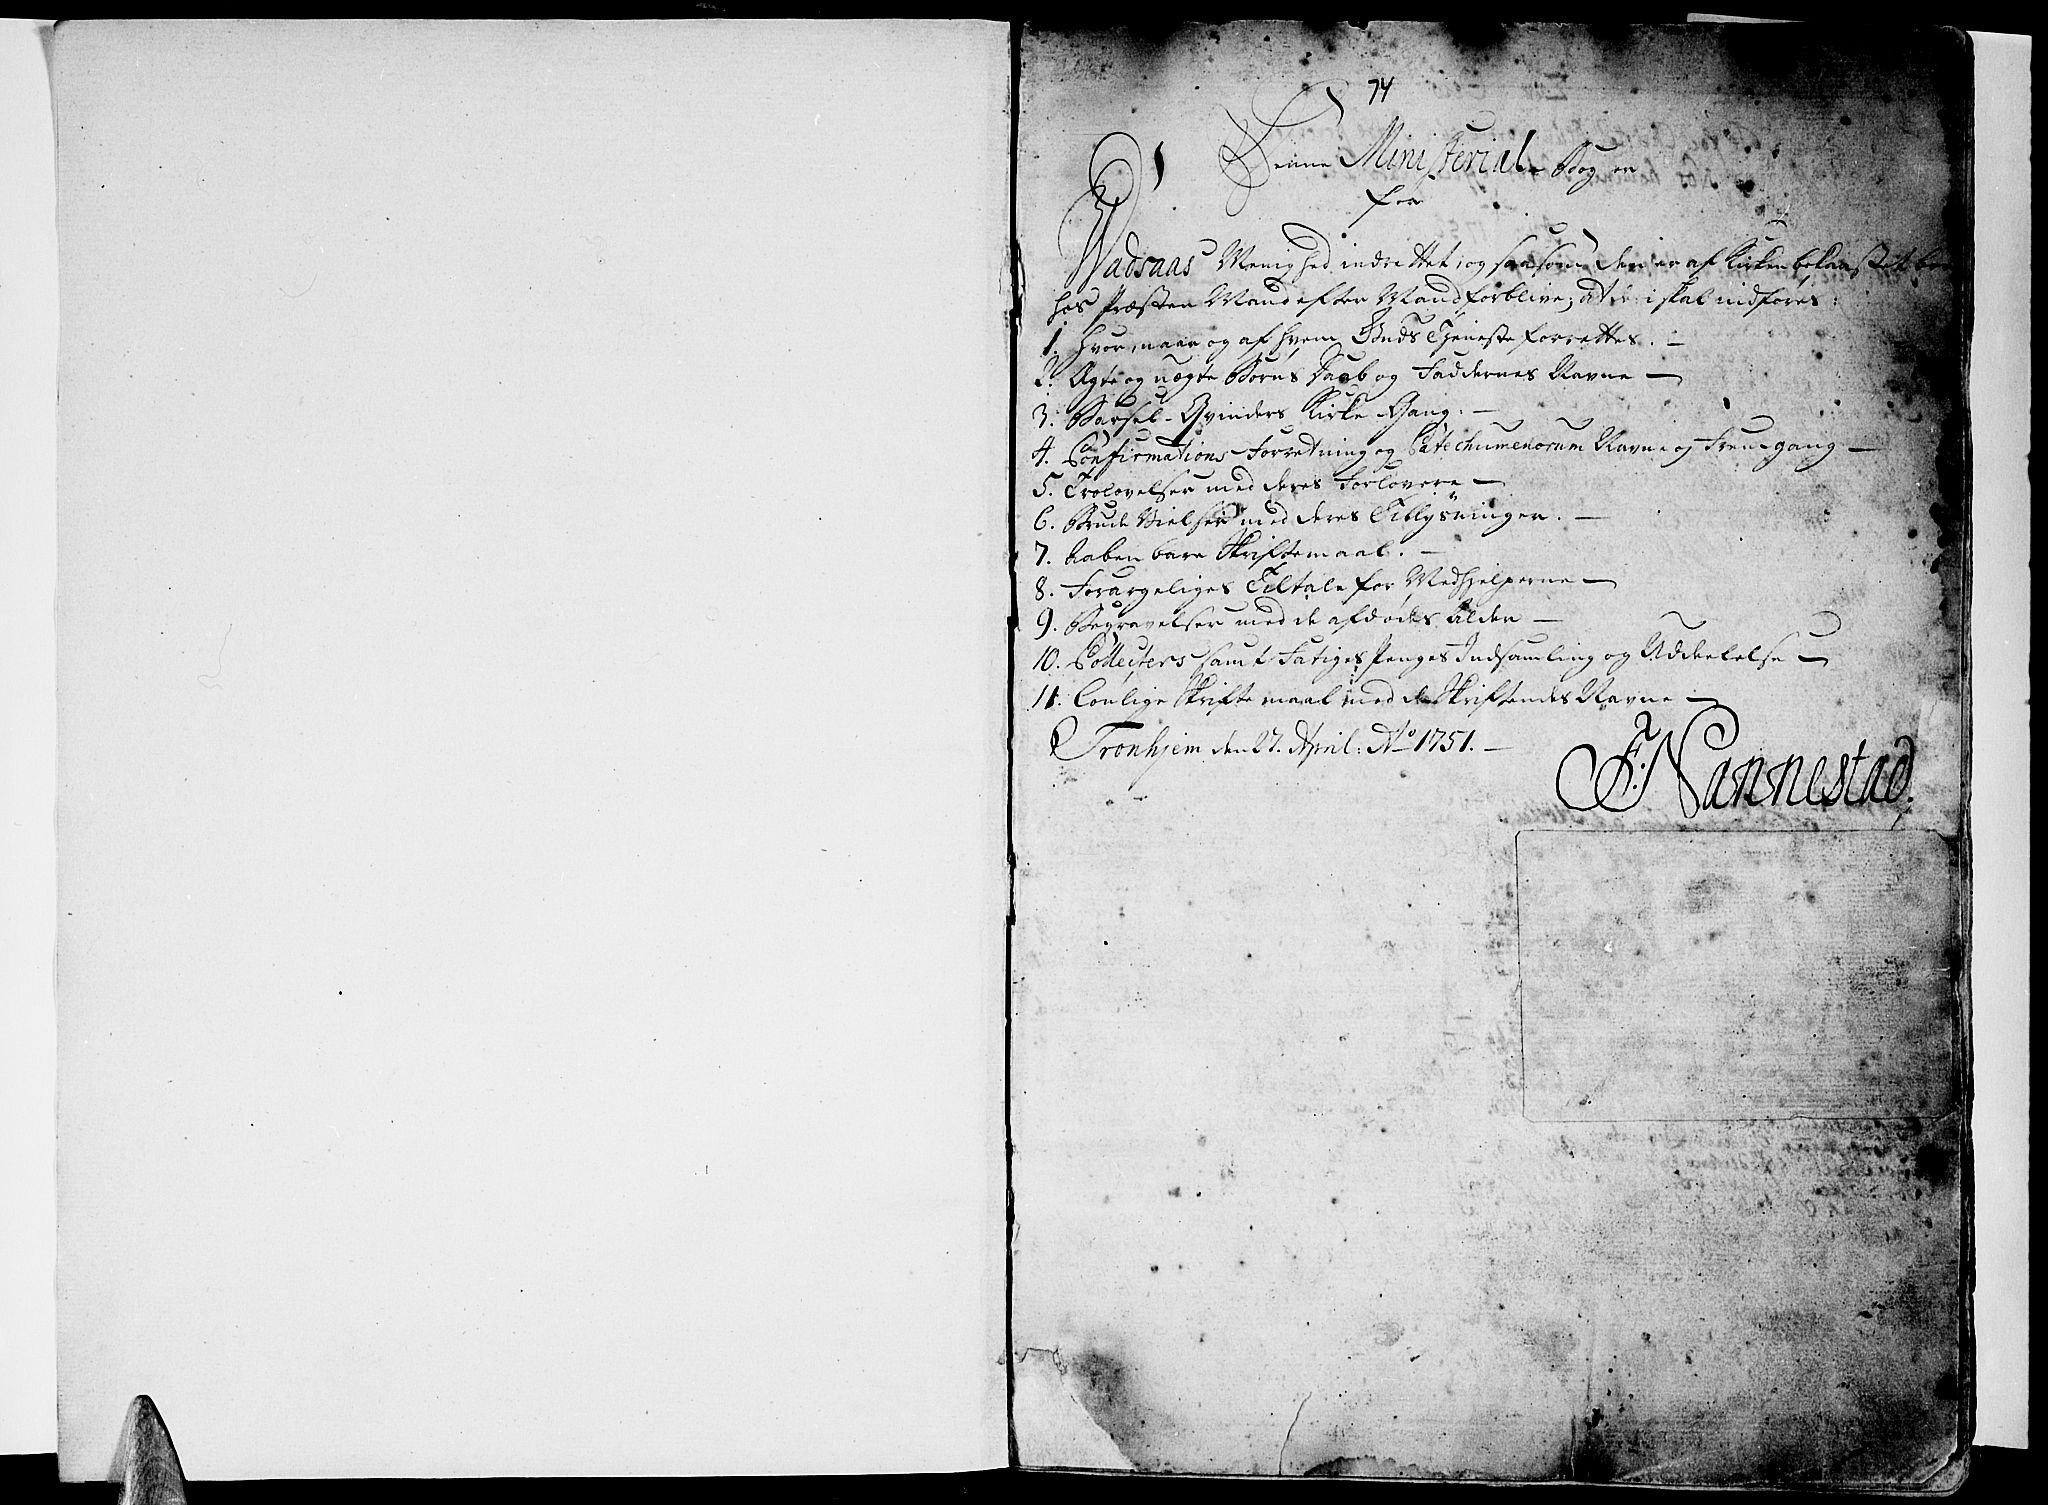 74
Denne Ministerial-Bog er
for
Wadsaas Menighed indrettet, og saasom den er af Kirken bekaastet, bør
hos Præsten Mand efter Mand forblive; at deri skal indføres:
1. Hvor, naar og af hvem Guds Tjeneste forrettes. —
2. Ægte og uægte Børns Daab og Faddernes Navne —
3. Barsel-Qvinders Kirke-Gang. —
4. Confirmations-Forretning og Catechumenorum Navne og Fremgang —
5. Trolovelser med deres Forlovere —
6. Brude Vielser med deres Tillysninger. —
7. Aabenbare Skriftemaal. —
8. Forargeliges Tiltale for Medhjelperne —
9. Begravelser med de afdødes Alder —
10. Collecters samt Fatiges Penges Indsamling og Uddeelelse —
11. Lønlige Skriftemaal med de Skriftendes Navne —
Tronhjem den 27. April: Ao 1751. —
F. Nannestad.